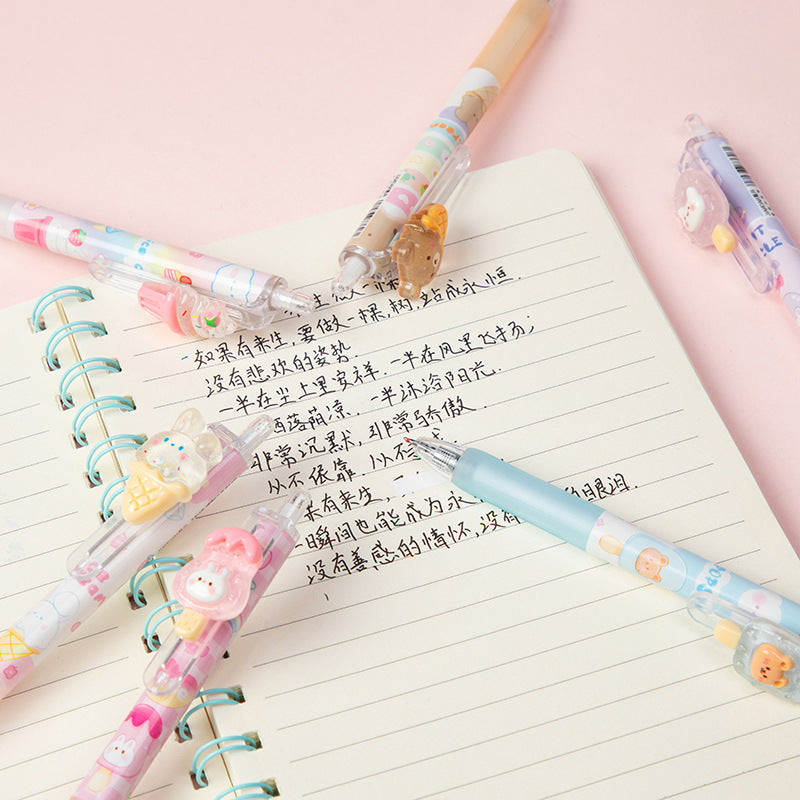 如果有来生,要做一棵树,站成永恒.
没有悲欢的姿势.
一半在尘土里安祥.一半在风里飞扬;
洒落荫凉.一半沐浴阳光.
非常沉默,非常骄傲.
从不依靠,从不
有来生,
一瞬间也能成为永 的眼泪.
没有善感的情怀,没有